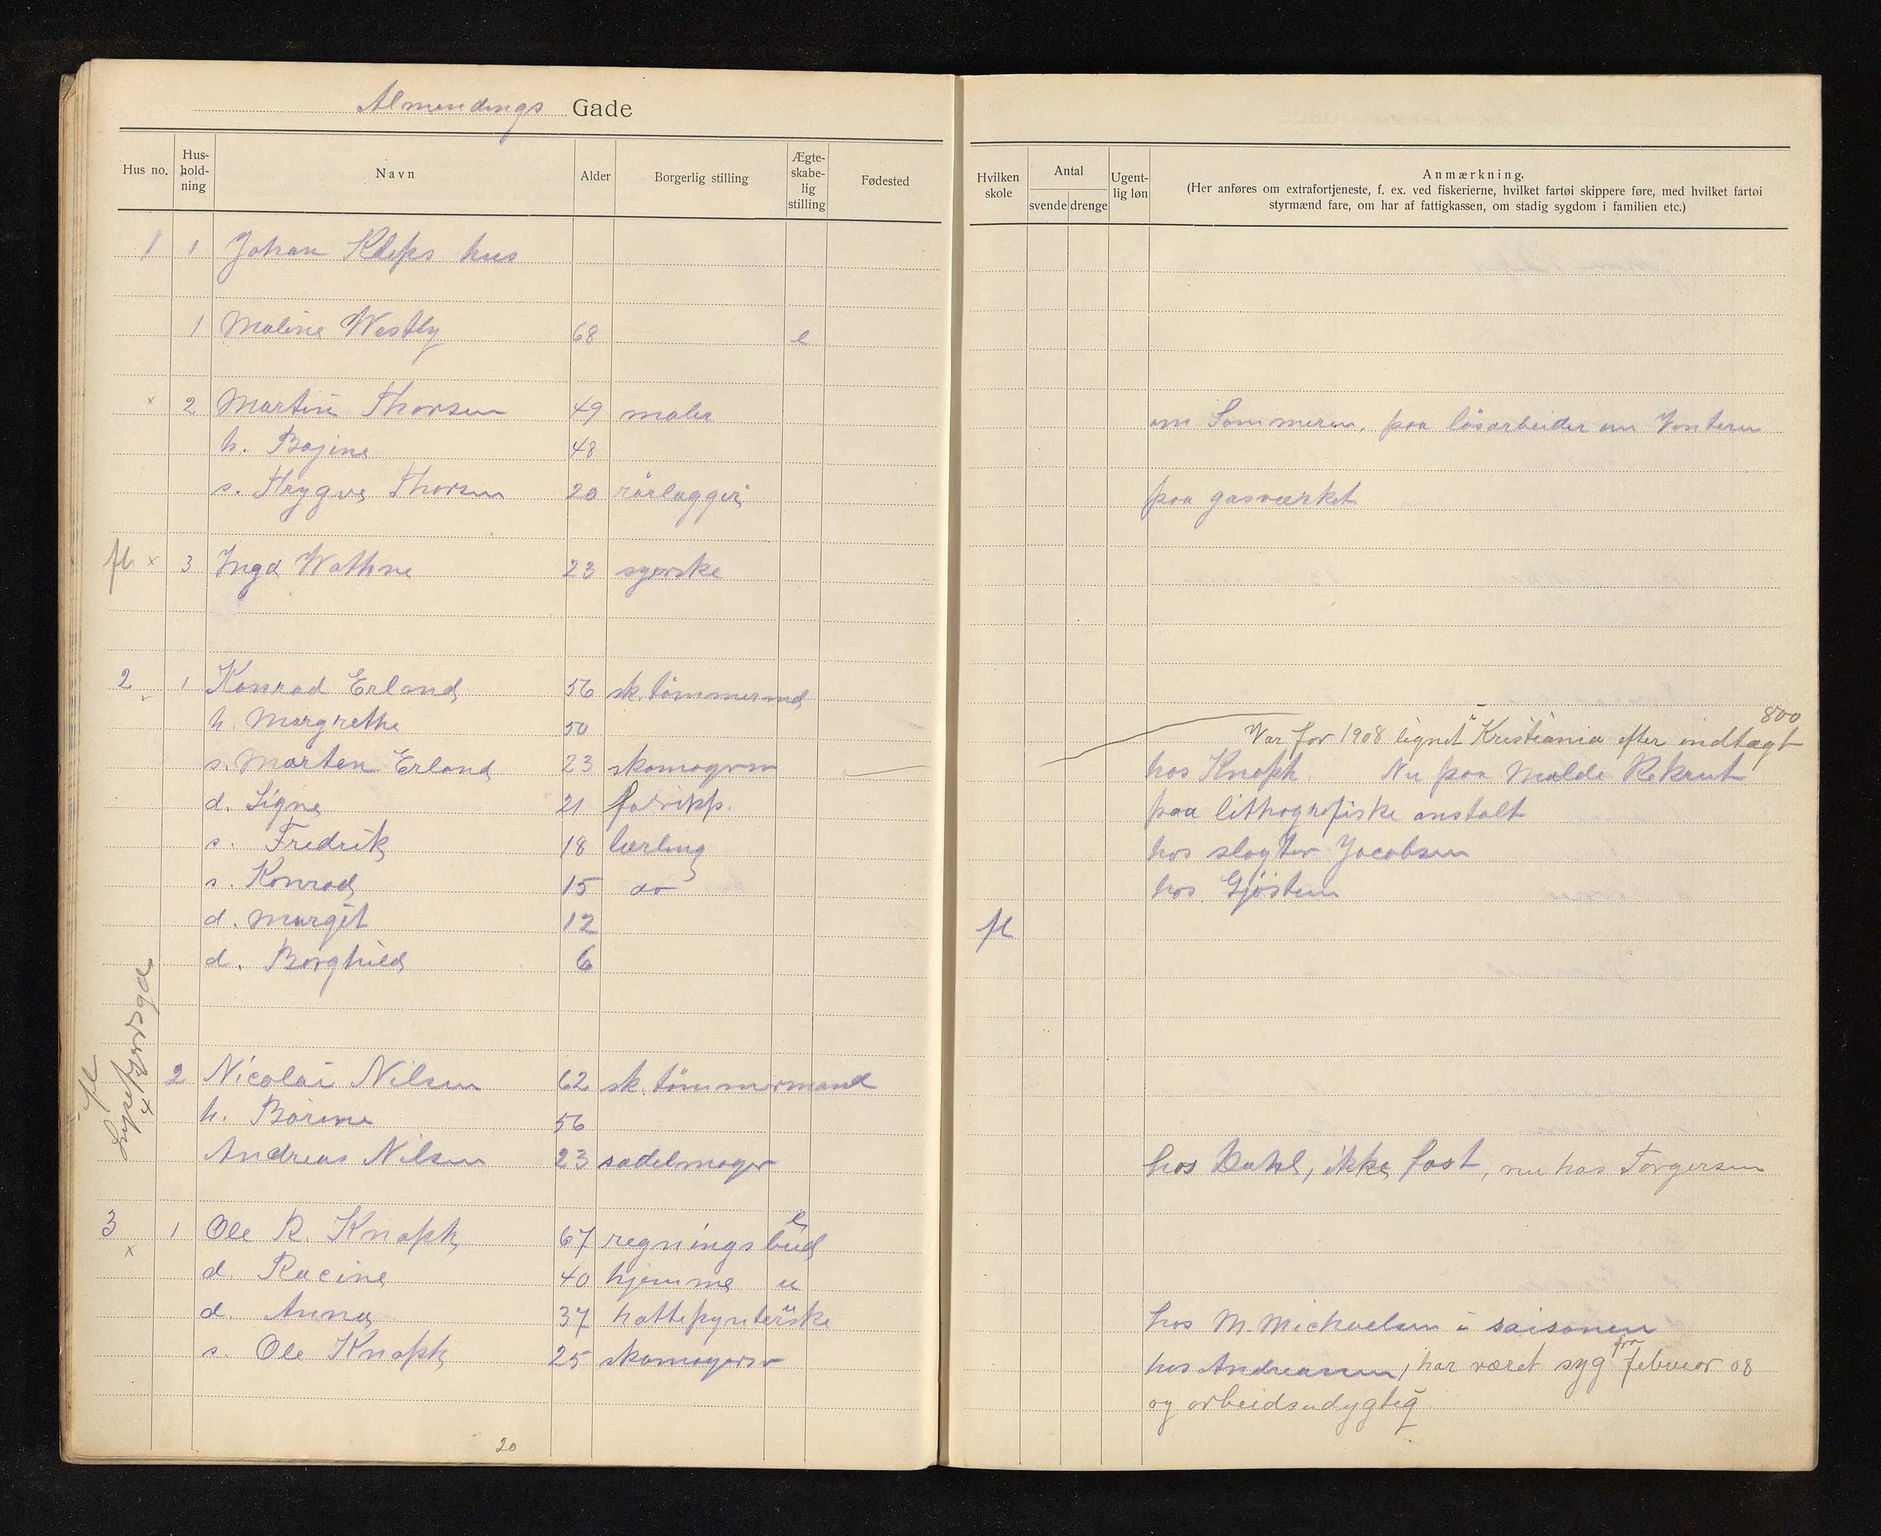 Almendings Gade
Hus no. Hus-hold-ning Navn Alder Borgerlig stilling Ægte-skabe-lig stilling Fødested Hvilken skole Antal svende drenge Ugent-lig løn Anmærkning.
(Her anføres om extrafortjeneste, f. ex. ved fiskerierne, hvilket fartøi skippere føre, med hvilket fartøi
styrmænd fare, om har af fattigkassen, om stadig sygdom i familien etc.)
1 1 Johan Kleps hus
1 Maline Westly 68 e
x 2 Martin Thorsen 49 maler om Sommeren, paa løsarbeider om Vinteren
h. Bojine 48
s. Thrygve Thorsen 20 rörlægger paa gasværket
fl x 3 Inga Wathne 23 syerske
2 1 Konrad Erland 56 sk. tömmermd
h. Margrethe 50 800
Var for 1908 lignet i Kristiania efter indtægt
s. Marten Erland 23 skomagersv hos Knoph Nu paa Malde Rekrut
d. Signe 21 fabrikp. paa lithografiske anstalt
s. Fredrik 18 lærling hos slagter Jacobsen
s. Konrad 15 do hos Gjöstein
d. Margit 12 fl
d. Borghild 6
fl Lysefjordsgd x
2 Nicolai Nilsen 62 sk. tömmermand
h. Bärine 56
Andreas Nilsen 23 sadelmager hos Dahl, ikke fast, nu hos Torgersen
3 x 1 Ole R. Knoph 67 regningsbud e
d. Racine 40 hjemme u
d. Anna 37 hattepynterske u hos M. Michaelsen i saisonen
s. Ole Knoph 25 skomagersv hos Andreasen, har været syg fra februar 08
og arbeidsudygtig
20